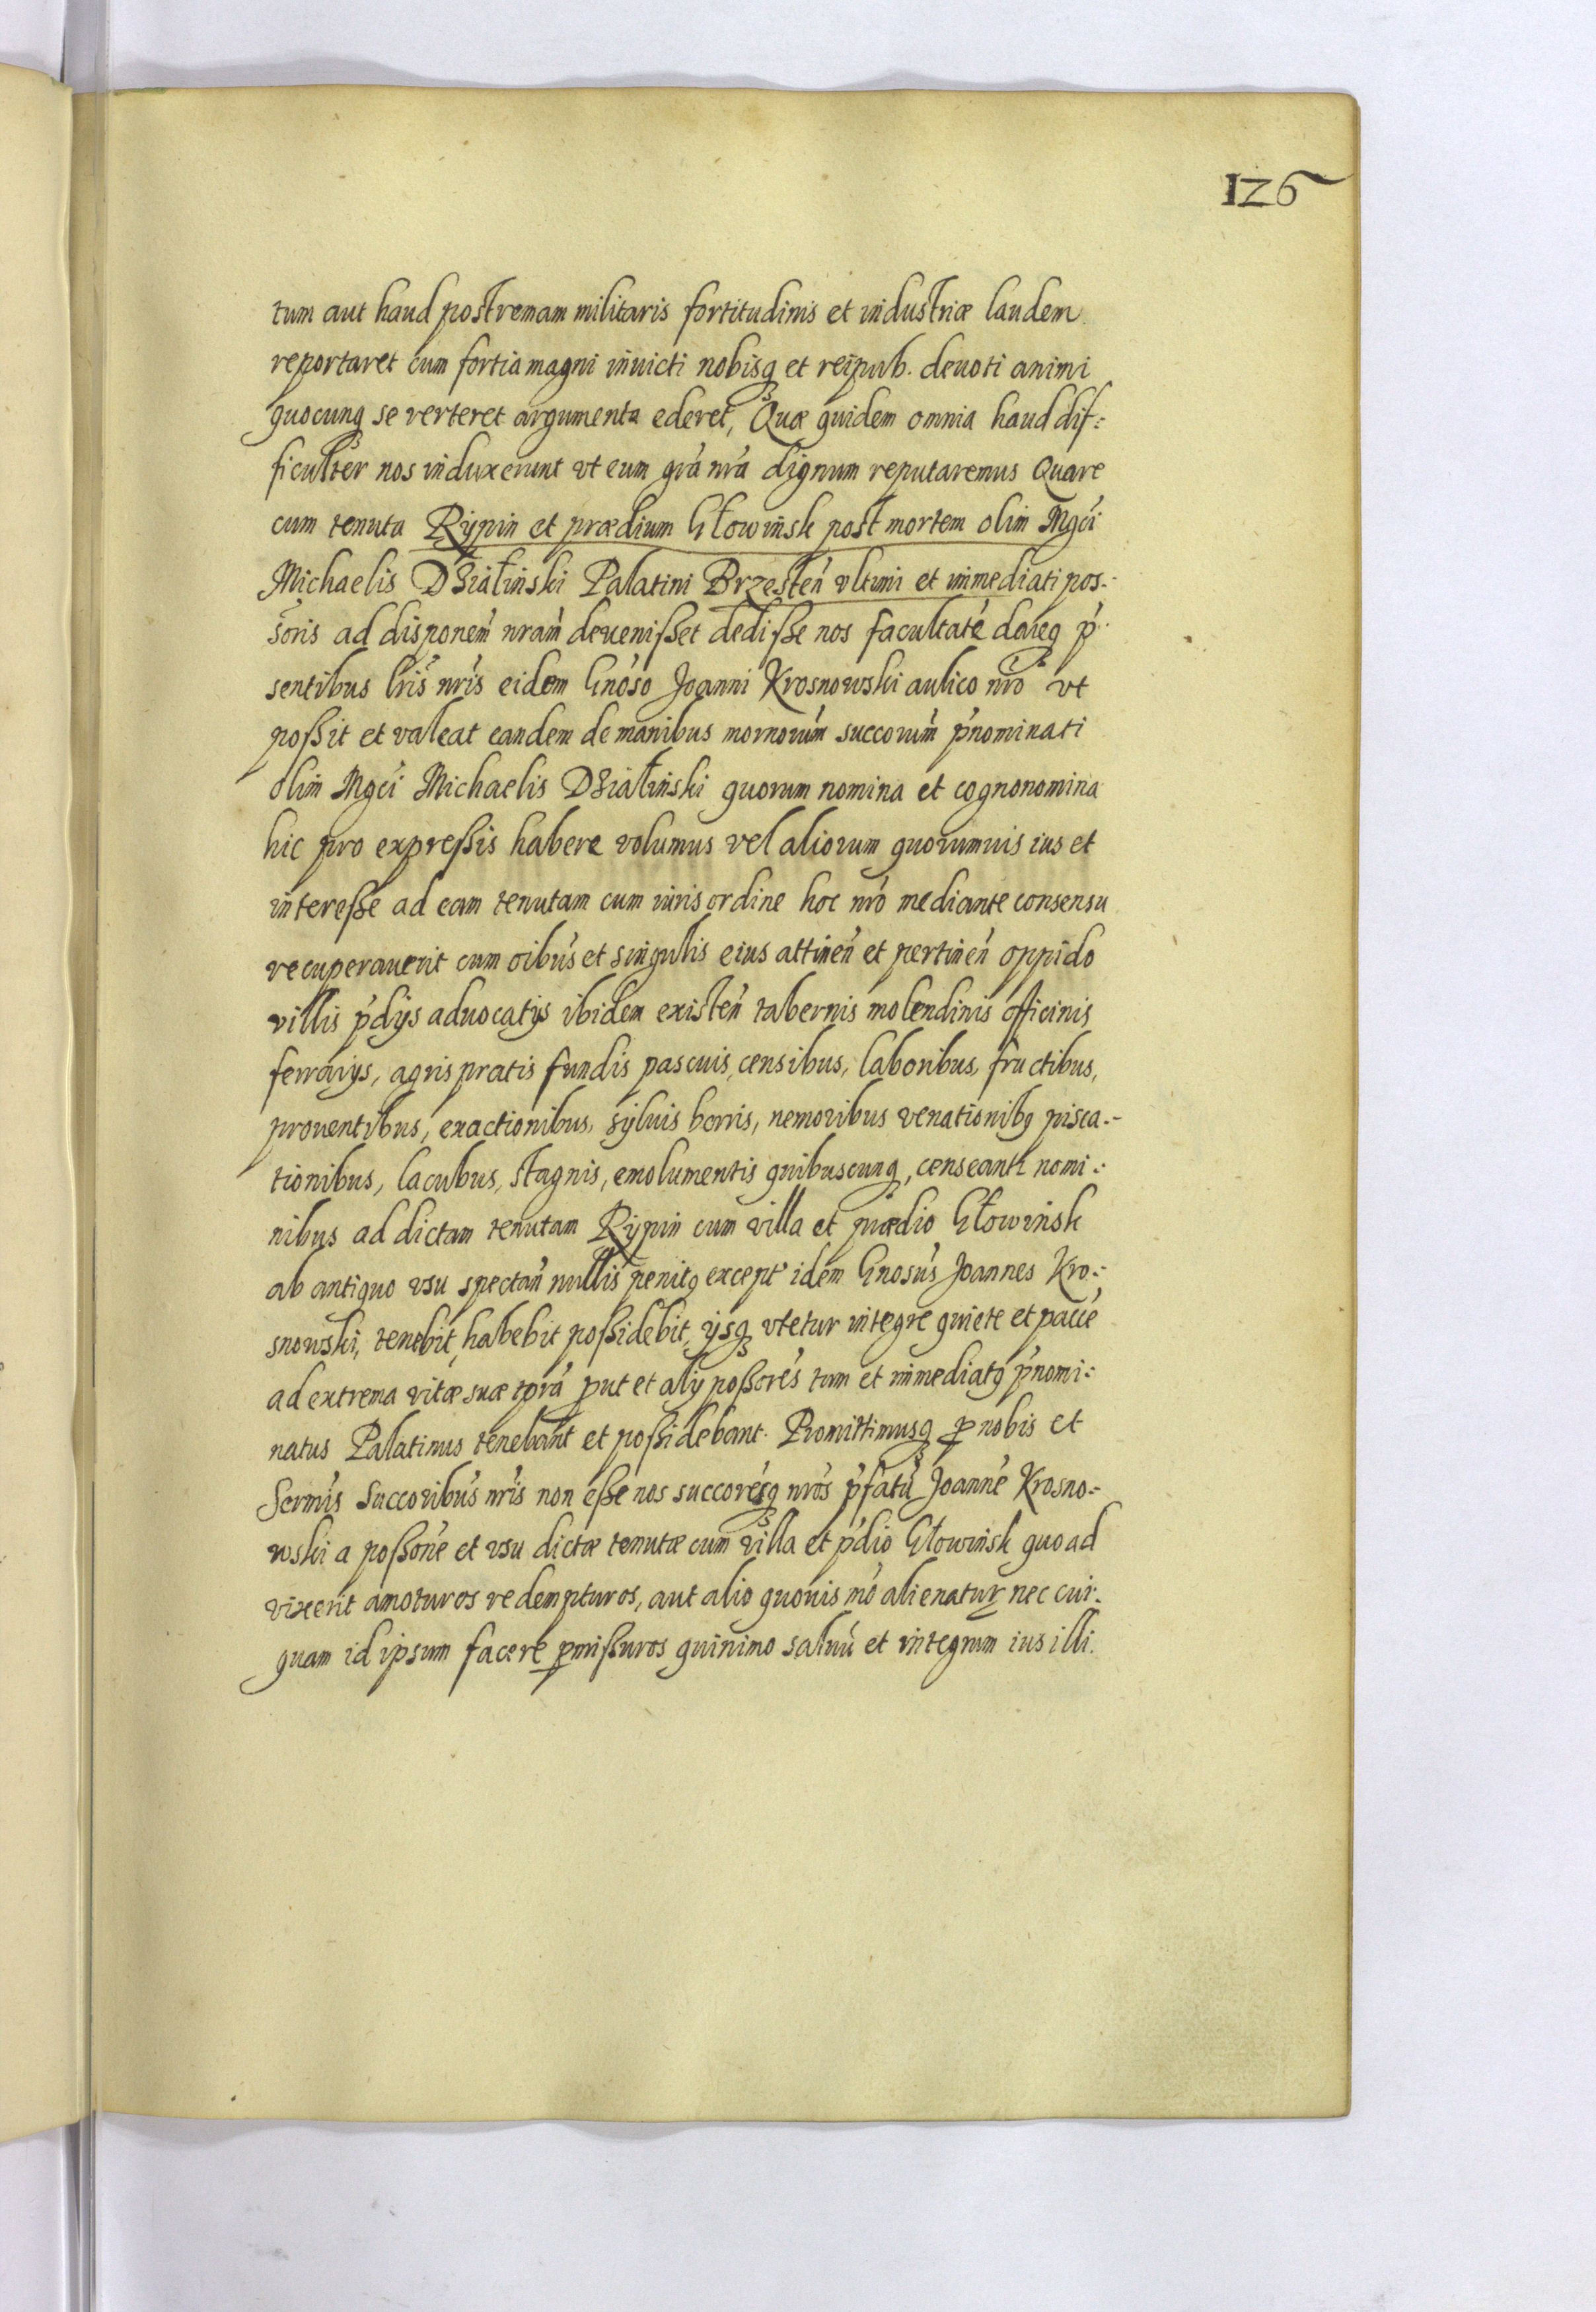 126
tum aut haud postremam militaris fortitudinis et industriæ laudem
reportaret cum fortia magni inuicti nobisq et reipub. deuoti animi
quocunq se verteret argumenta ederet, Quæ quidem omnia haud dif=
ficulter nos induxerunt vt eum grã nrã dignum reputaremus Quare
cum tenuta Rÿpin et prædium Głowinsk post mortem olim Mgci
Michaelis Dzialiński Palatini Brzesteń vltimi et immediati pos=
soris ad disponem nram deuenisset dedisse nos facultatē dareq p̃
sentibus lris nris eidem Gnoso Joanni Krosnowski aulico nro vt
possit et valeat eandem de manibus mornorum succorum p̃nominati
olim Mgci Michaelis Dzialiński quorum nomina et cognonomina
hic pro expressis habere volumus vel aliorum quorumuis ius et
interesse ad eam tenutam cum iuris ordine hoc nro mediante consensu
recuperauerit cum oibus et singulis eius attineń et pertineń oppido
villis p̃dijs aduocatijs ibidem existeń tabernis molendinis officinis
ferrarijs, agris pratis fundis pascuis, censibus, laboribus, fructibus,
prouentibus, exactionibus, syluis borris, nemoribus venationibq pisca=
tionibus, lacubus, stagnis, emolumentis quibuscunq, censeantr nomi=
nibus ad dictam tenutam Rÿpin cum villa et prædio Głowinsk
ab antiquo vsu spectań nullis penitq except' idem Gnosus Joannes Kro=
snowski, tenebit, habebit possidebit, ijsq vtetur integre quiete et pacce
ad extrema vitæ suæ tpra put et alij possores tum et immediatq p̃nomi=
natus Palatinus tenebant et possidebant. Promittimusq p nobis et
Sermis Succoribus nris non esse nos succoresq nros p̃fatū Joannē Krosno=
wski a possone et vsu dictæ tenutæ cum villa et p̃dio Głowinsk quoad
vixerit amoturos redempturos, aut alio quouis mo alienatur nec cui=
quam id ipsum facere pmissuros quinimo saluū et integrum ius illi.